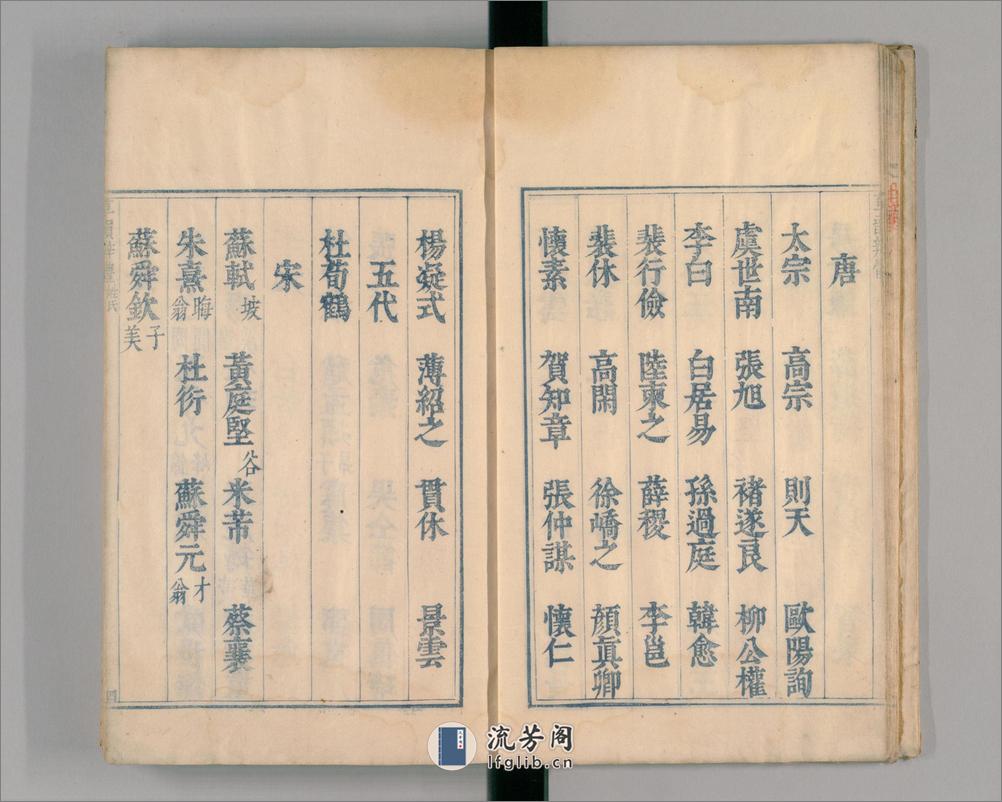 唐
太宗 高宗 則天 歐陽詢
虞世南 張旭 褚遂良 柳公權
李白 白居易 孫過庭 韓愈
裴行儉 陸柬之 薛稷 李邕
裴休 高閑 徐嶠之 顔真卿
懷素 賀知章 張仲謀 懷仁
楊凝式 薄紹之 貫休 景雲
五代
杜荀鶴
宋
蘇軾坡 黃庭堅谷 米芾 蔡襄
朱熹晦翁 杜衍 蘇舜元才翁
蘇舜欽子美
四
流芳阁
lfglib.cn